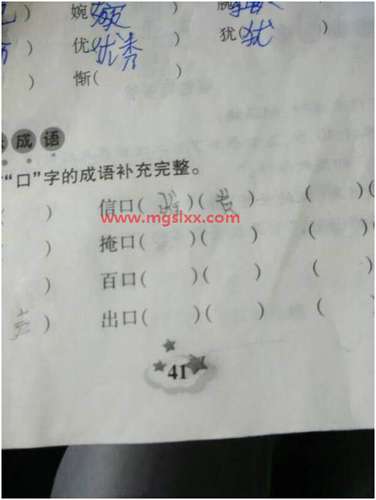 ) 婉( ) 腕(
) 优(优秀) 犹(犹
) 惭( )
成语
“口”字的成语补充完整。
) 信口( )( ) ( )(
www.mgslxx.com
) 掩口( )( ) ( )(
) 百口( )( ) ( )(
) 出口( )( ) (
41